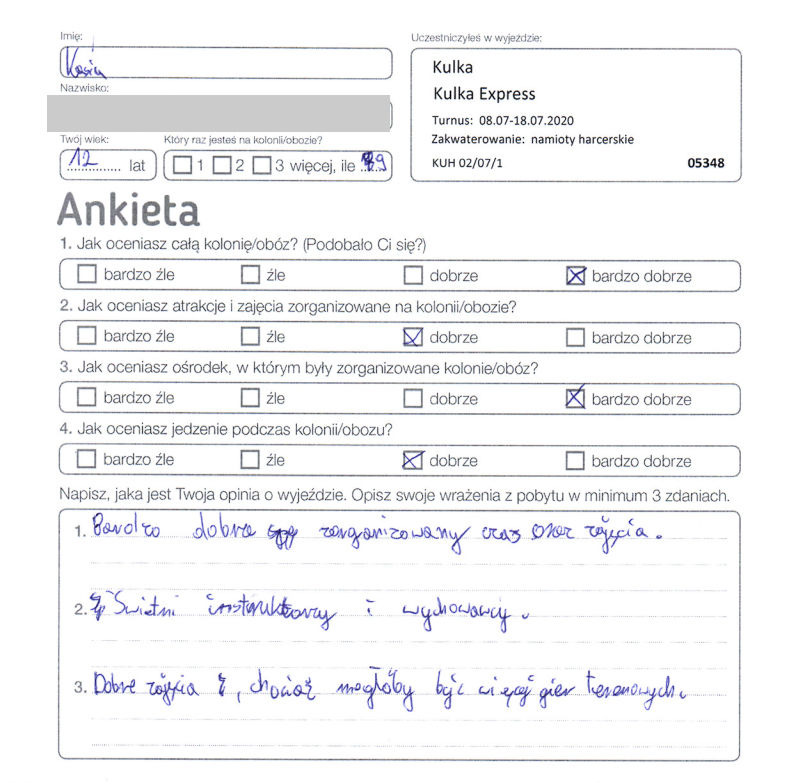 Imię:
Kasia
Nazwisko:
Twój wiek:
Który raz jesteś na kolonii/obozie?
12 lat
1 2 3 więcej, ile 9
Uczestniczyłeś w wyjeździe:
Kulka
Kulka Express
Turnus: 08.07-18.07.2020
Zakwaterowanie: namioty harcerskie
KUH 02/07/1 05348
Ankieta
1. Jak oceniasz całą kolonię/obóz? (Podobało Ci się?)
bardzo źle źle dobrze bardzo dobrze
2. Jak oceniasz atrakcje i zajęcia zorganizowane na kolonii/obozie?
bardzo źle źle dobrze bardzo dobrze
3. Jak oceniasz ośrodek, w którym były zorganizowane kolonie/obóz?
bardzo źle źle dobrze bardzo dobrze
4. Jak oceniasz jedzenie podczas kolonii/obozu?
bardzo źle źle dobrze bardzo dobrze
Napisz, jaka jest Twoja opinia o wyjeździe. Opisz swoje wrażenia z pobytu w minimum 3 zdaniach.
1. Bardzo dobrze zorganizowany czas oraz zajęcia.
2. Świetni instruktorzy i wychowawcy.
3. Dobre zajęcia, chociaż mogłoby być więcej gier terenowych.